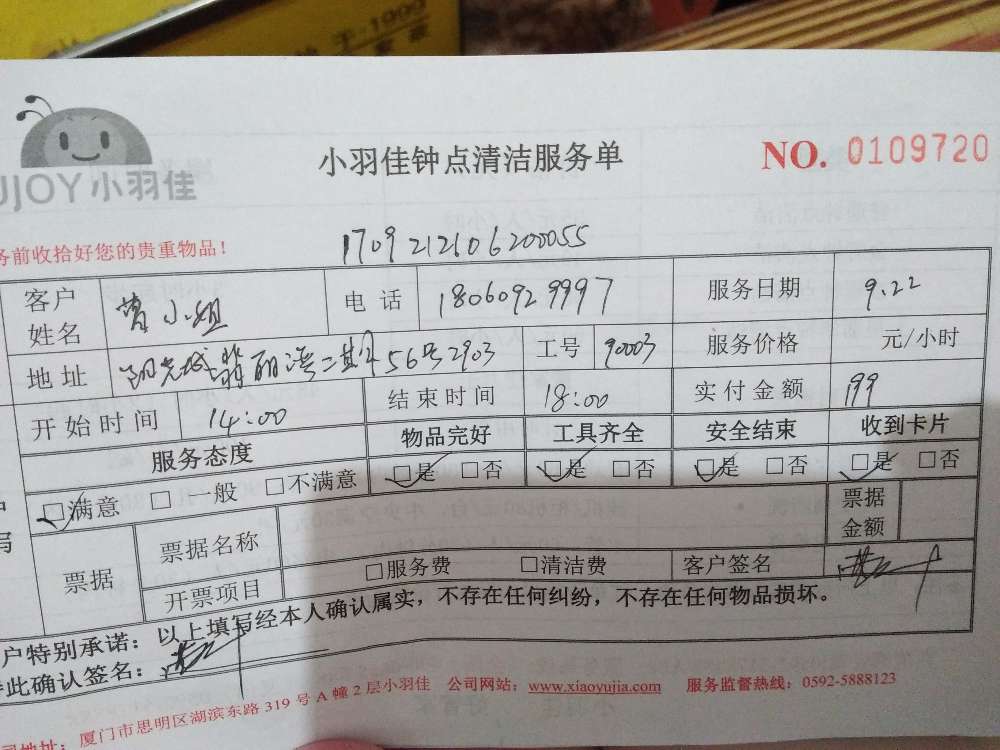 于:1999
UJOY小羽佳
小羽佳钟点清洁服务单
NO. 0109720
务前收拾好您的贵重物品!
170921210620005​5
客户姓名 曾小姐 电话 18060929997 服务日期 9.22
地址 阳光城翡丽湾二期56号2903 工号 90003 服务价格 元/小时
开始时间 14:00 结束时间 18:00 实付金额 199
服务态度 物品完好 工具齐全 安全结束 收到卡片
☑满意 □一般 □不满意 ☑是 □否 ☑是 □否 ☑是 □否 ☑是 □否
写
票据 票据名称 票据金额
开票项目 □服务费 □清洁费 客户签名
户特别承诺:以上填写经本人确认属实,不存在任何纠纷,不存在任何物品损坏。
此确认签名:
地址:厦门市思明区湖滨东路319号A幢2层小羽佳 公司网站:www.xiaoyujia.com 服务监督热线:0592-5888123